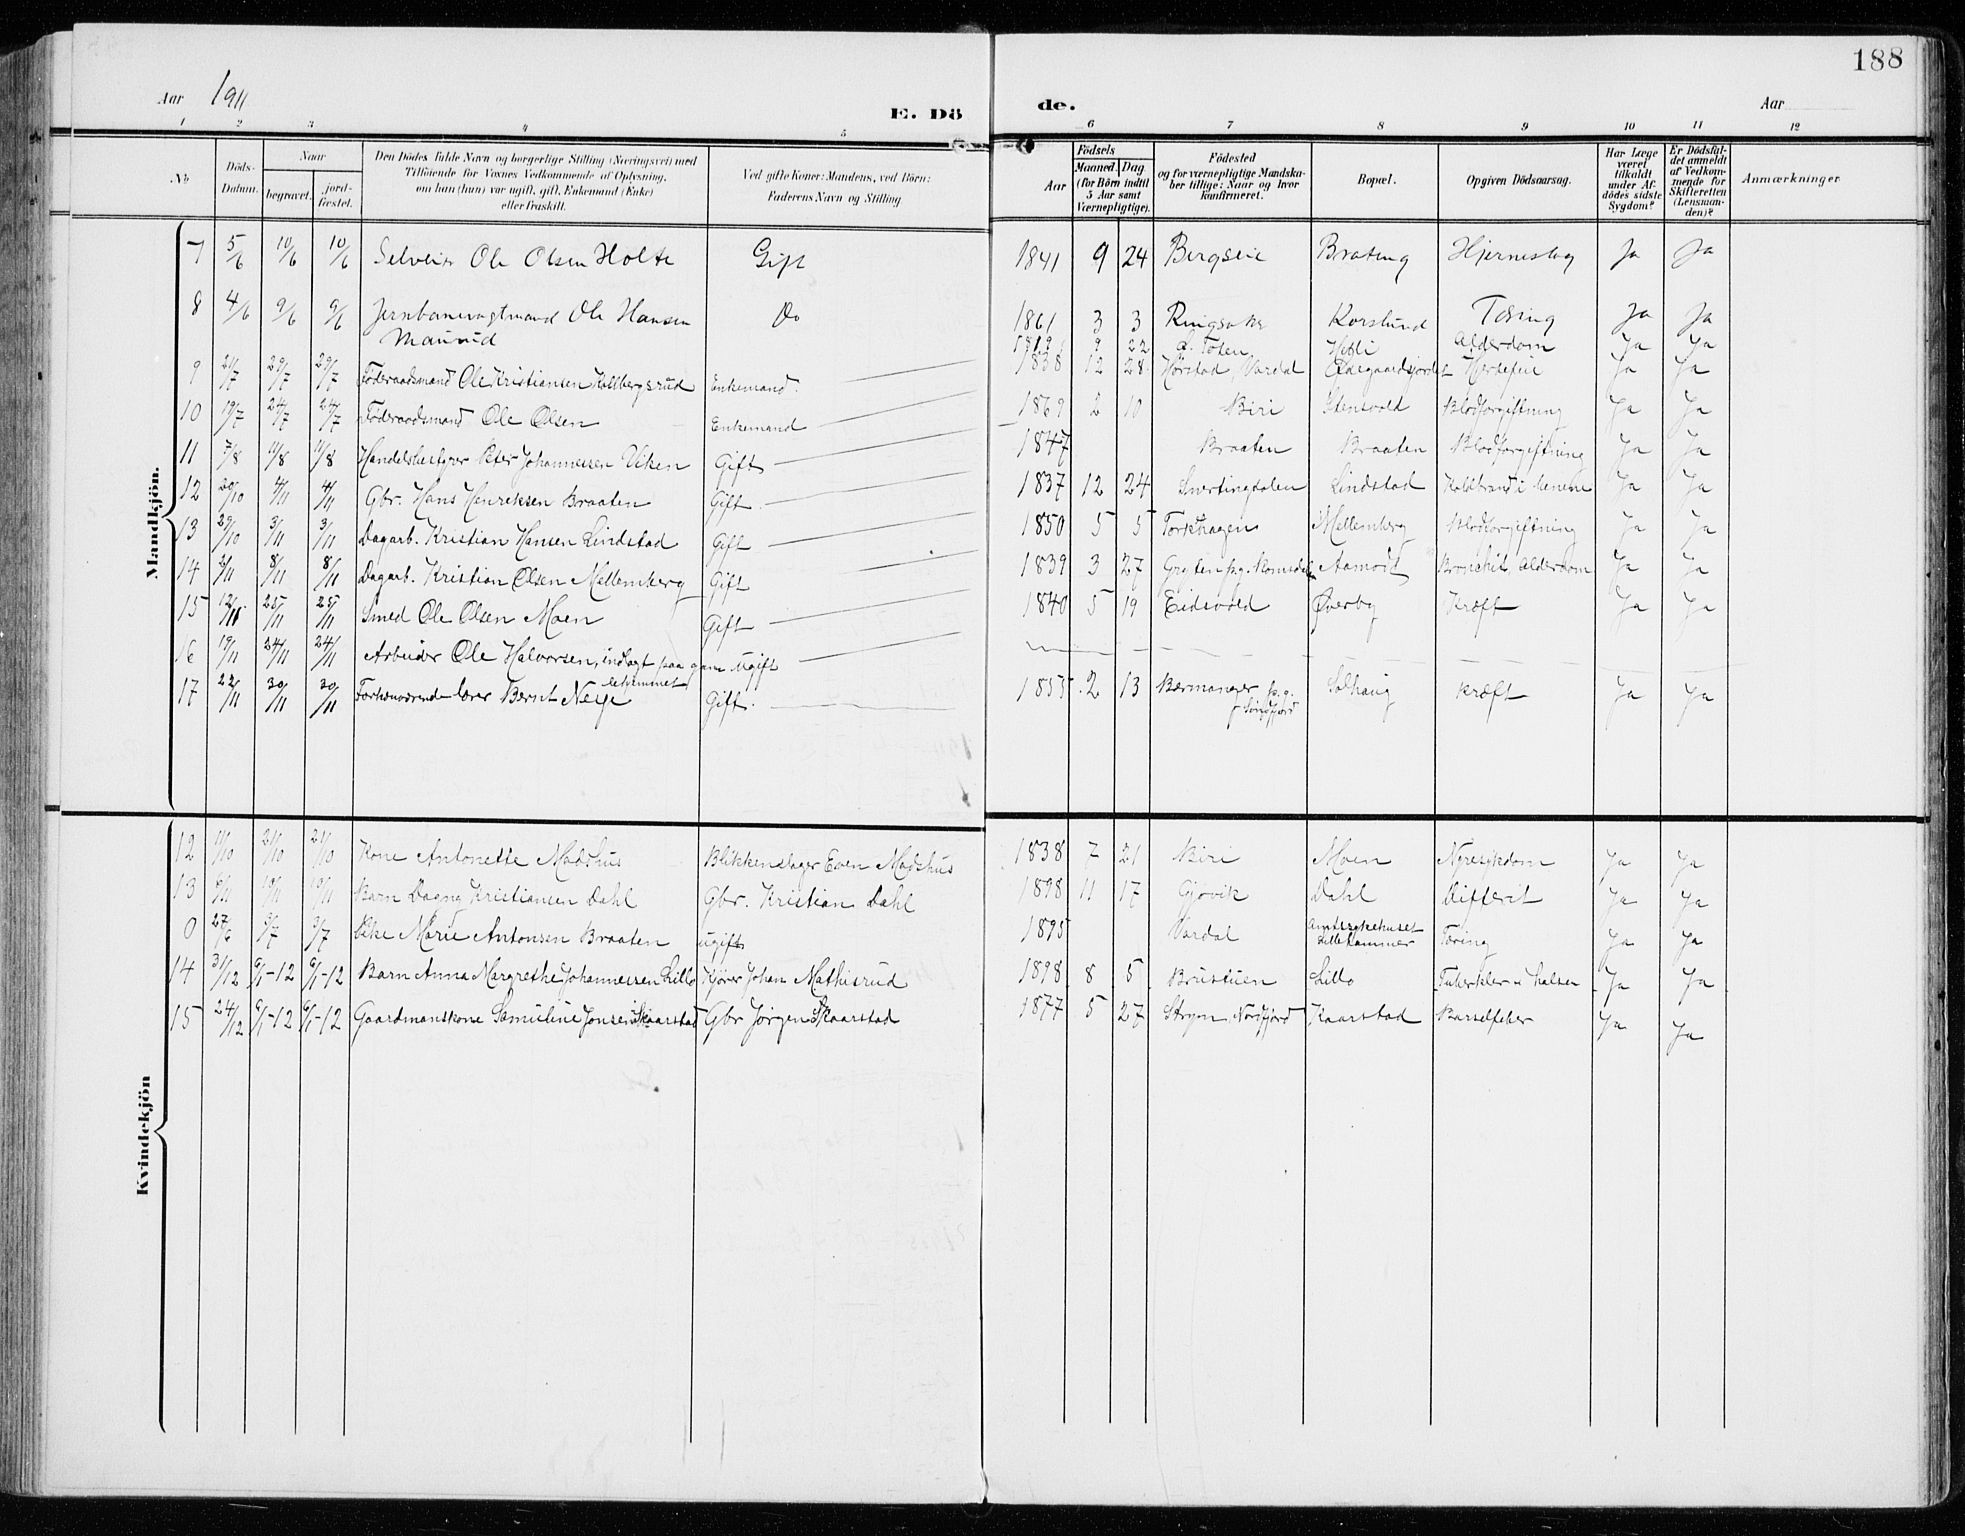 188
Aar 1911
E. Dö
de.
Aar
1 2 3 4 5 6 7 8 9 10 11 12
No
Döds-
Datum.
Naar
begravet.
jord-
fæstet.
Den Dödes fulde Navn og borgerlige Stilling (Næringsvei) med
Tilföiende for Voxnes Vedkommende af Oplysning,
om han (hun) var ugift, gift, Enkemand (Enke)
eller fraskilt.
Ved gifte Koner: Mandens, ved Börn:
Faderens Navn og Stilling
Födsels
Aar
Maaned. Dag
(for Börn indtil
5 Aar samt
Værnepligtige).
Födested
og for værnepligtige Mandska-
ber tillige: Naar og hvor
konfirmeret.
Bopæl.
Opgiven Dödsaarsag.
Har Læge
været
tilkaldt
under Af-
dödes sidste
Sygdom?
Er Dödsfal-
det anmeldt
af Vedkom-
mende for
Skifteretten
(Lensman-
den)?
Anmærkninger
Mandkjön.
7 5/6 10/6 10/6 Selveier Ole Olsen Holte Gift 1841 9 24 Bergseie Brateng Hjerneslag Ja Ja
8 4/6 9/6 9/6 Jernbanevagtmand Ole Hansen Do 1861 3 3 Ringsaker Korslund Tæring Ja Ja
Maurud
9 22 Ø. Toten Alderdom Ja Ja
9 21/7 29/7 29/7 Föderaadsmand Ole Kristiansen Kollbergsrud Enkemand 1838 12 28 Hörstad Vardal Ødegaardsjordet Hjertefeil Ja Ja
10 19/7 24/7 24/7 Föderaadsmand Ole Olsen Enkemand 1869 2 10 Biri Stensvold Blodforgiftning Ja Ja
11 7/8 11/8 11/8 Handelsbestyrer Peter Johannessen Viken Gift 1847 Braaten Braaten Blodforgiftning Ja Ja
12 29/10 4/11 4/11 Gbr. Hans Henriksen Braaten Gift 1837 12 24 Snertingdalen Lindstad Koldbrand i benene Ja Ja
13 29/10 3/11 3/11 Dagarb. Kristian Hansen Lindstad Gift 1850 5 5 Torkhagen Mellemberg Blodforgiftning Ja Ja
14 2/11 8/11 8/11 Dagarb. Kristian Olsen Mellemberg Gift 1839 3 27 Gryten pg. Romsdalen Aamodt Bronchit, Alderdom Ja Ja
15 12/11 25/11 25/11 Smed Ole Olsen Moen Gift 1840 5 19 Eidsvold Øverby Kræft Ja Ja
16 19/11 24/11 24/11 Arbeider Ole Halvorsen, indlagt paa gam Ugift
lehjemmet
17 22/11 30/11 30/11 Forhenværende lærer Bernt Neye Gift 1855 2 13 Bremanger p.g. Solhaug Kræft Ja Ja
Kvindekjön
12 11/10 21/10 21/10 Kone Antonette Madshus Blikkenslager Even Madshus 1838 7 21 Biri Moen Nyresykdom Ja Ja
13 6/11 10/11 10/11 Barn Dagny Kristiansen Dahl Gbr. Kristian Dahl 1898 11 17 Gjövik Dahl Difterit Ja Ja
0 27/6 3/7 3/7 Pike Marie Antonsen Braaten ugift 1895 Vardal Amtssykehuset Tæring Ja Ja
Lillehammer
14 31/12 6/1-12 6/1-12 Barn Anna Margrethe Johannessen Lillo Kjörer Johan Mathisrud 1898 8 5 Brustuen Lillo Tuberkler i halsen Ja Ja
15 24/12 6/1-12 6/1-12 Gaardmanskone Samueline Jonsen Skaarstad Gbr Jörgen Skaarstad 1877 5 27 Stryn, Nordfjord Kaarstad Barselfeber Ja Ja